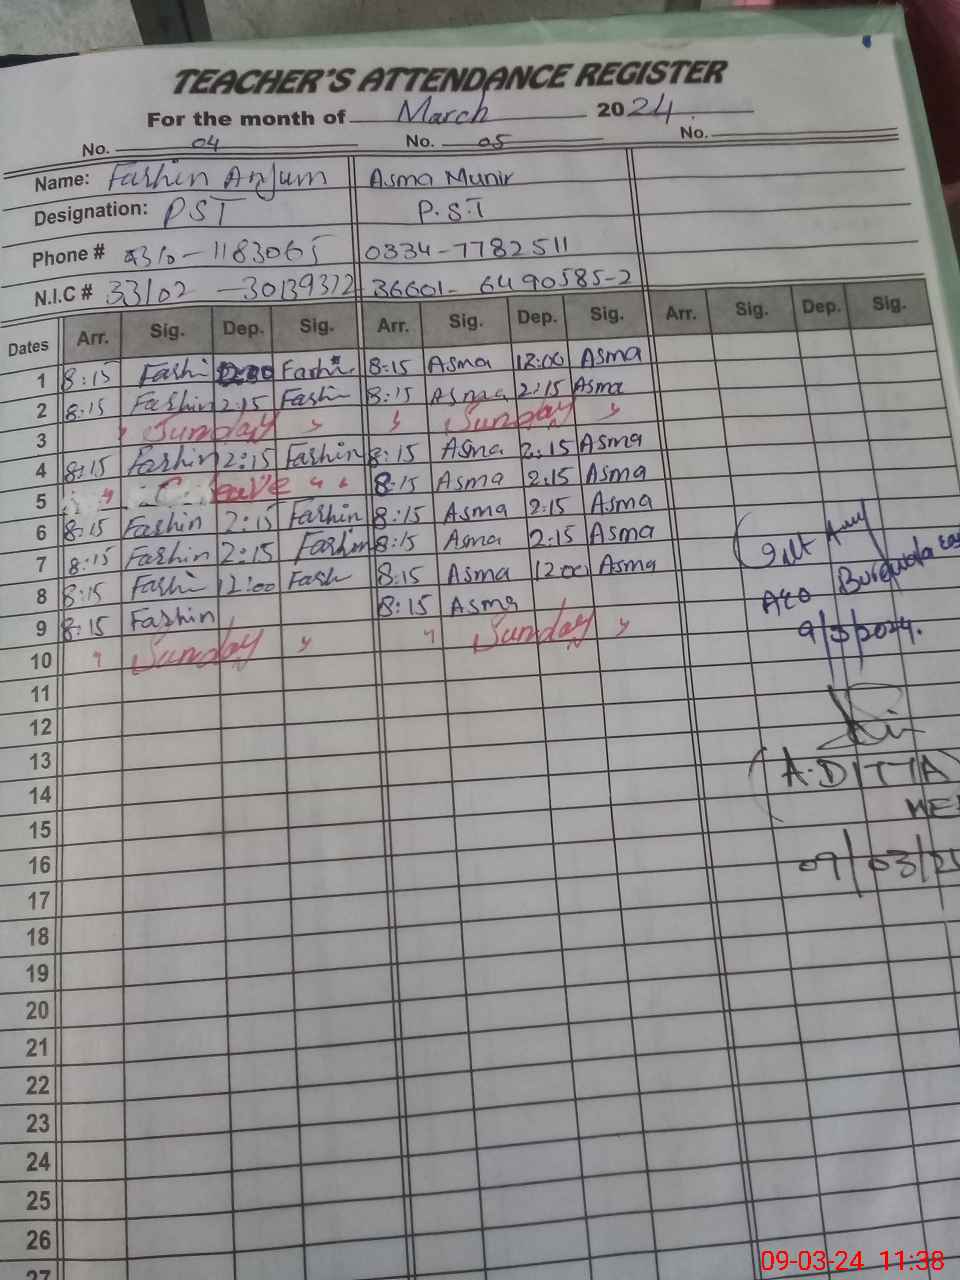 TEACHER'S ATTENDANCE REGISTER
For the month of March 2024
No. 04 No. 05 No.
Name: Farhin Anjum Asma Munir
Designation: PST P.S.T
Phone # 0310-1183065 0334-7782511
N.I.C # 33102-30139372 36601-6490585-2
Dates Arr. Sig. Dep. Sig. Arr. Sig. Dep. Sig. Arr. Sig. Dep. Sig.
1 8:15 Farhi Farhi 8:15 Asma 12:00 Asma
2 8:15 Farhin 2:15 Farhi 8:15 Asma 2:15 Asma
3 " Sunday " " Sunday "
4 8:15 Farhin 2:15 Farhin 8:15 Asma 2:15 Asma
5 " C. leave " " 8:15 Asma 2:15 Asma
6 8:15 Farhin 2:15 Farhin 8:15 Asma 2:15 Asma
7 8:15 Farhin 2:15 Farhin 8:15 Asma 2:15 Asma
8 8:15 Farhi 12:00 Farh 8:15 Asma 1200 Asma
9 8:15 Farhin 8:15 Asma
10 " Sunday " " Sunday "
11
12
13
14
15
16
17
18
19
20
21
22
23
24
25
26
27
AEO
9/3/2024.
(A.DITTA)
09/03/2
09-03-24 11:38